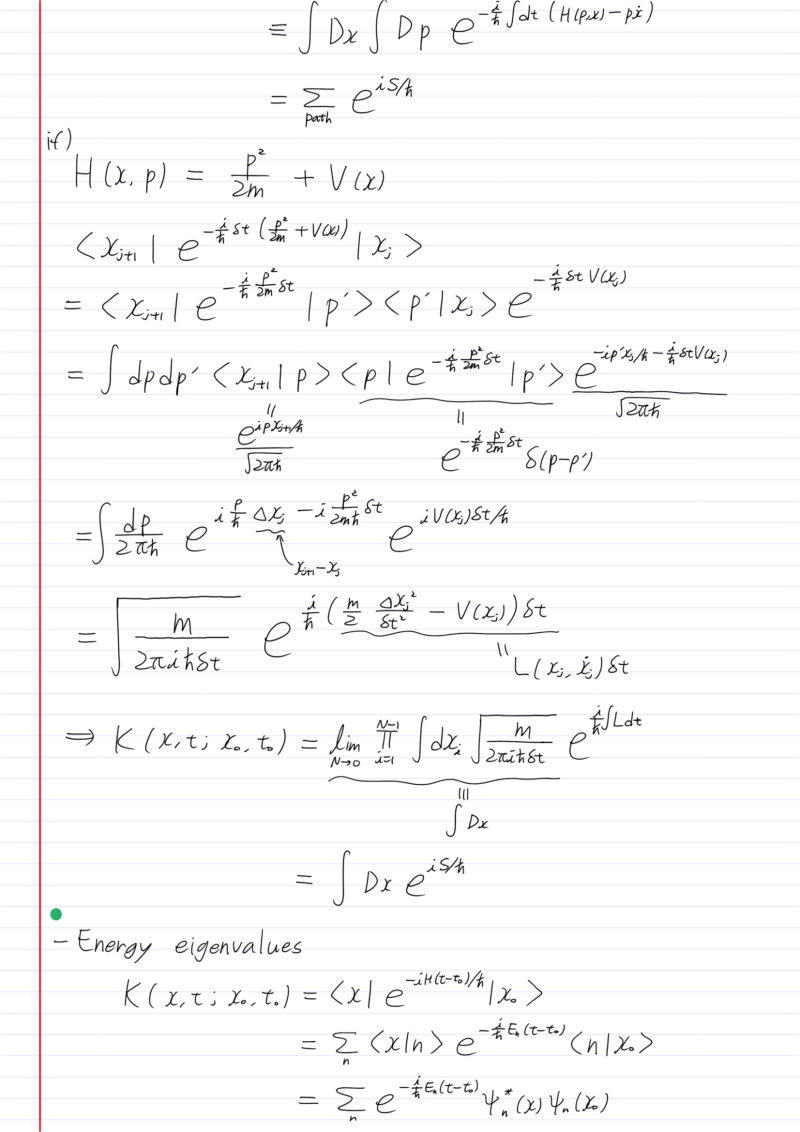 ≡ ∫ Dx ∫ Dp e^{-i/ħ ∫dt (H(p,x) - pẋ)}
= Σ_{path} e^{iS/ħ}
if)
H(x, p) = p²/2m + V(x)
<x_{j+1} | e^{-i/ħ δt (p²/2m + V(x))} | x_j >
= <x_{j+1} | e^{-i/ħ p²/2m δt} | p'> <p' | x_j > e^{-i/ħ δt V(x_j)}
= ∫ dp dp' <x_{j+1} | p> <p | e^{-i/ħ p²/2m δt} | p'> e^{-ip'x_j/ħ - i/ħ δt V(x_j)} / √(2πħ)
= e^{ipx_{j+1}/ħ} / √(2πħ) = e^{-i/ħ p²/2m δt} δ(p-p')
= ∫ dp/2πħ e^{i p/ħ Δx_j - i p²/2mħ δt} e^{iV(x_j)δt/ħ}
x_{j+1} - x_j
= √(m/2πiħδt) e^{i/ħ (m/2 Δx_j²/δt² - V(x_j)) δt}
= L(x_j, ẋ_j) δt
⇒ K(x, t ; x₀, t₀) = lim_{N→0} ∏_{i=1}^{N-1} ∫ dx_i √(m/2πiħδt) e^{i/ħ ∫L dt}
≡ ∫ Dx
= ∫ Dx e^{iS/ħ}
- Energy eigenvalues
K(x, t ; x₀, t₀) = <x | e^{-iH(t-t₀)/ħ} | x₀ >
= Σ_n <x|n> e^{-i/ħ E_n(t-t₀)} <n|x₀>
= Σ_n e^{-i/ħ E_n(t-t₀)} ψ_n^*(x) ψ_n(x₀)